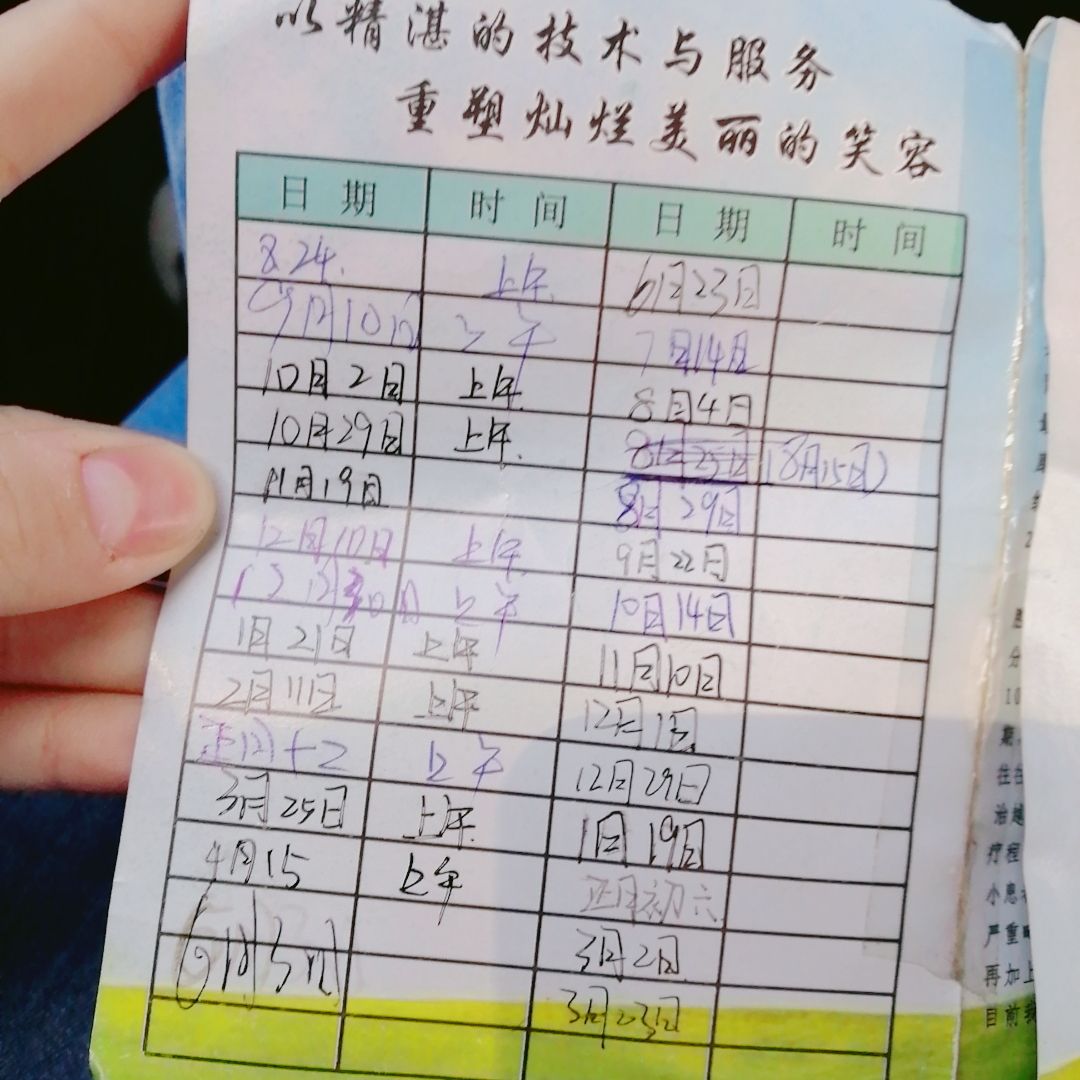 以精湛的技术与服务
重塑灿烂美丽的笑容
日期 时间 日期 时间
8.24. 上午 6月23日
9月10日 上午 7月14日
10月2日 上午 8月4日
10月29日 上午 8月25日(8月15日)
11月19日 8月29日
12月10日 上午 9月22日
12月30日 上午 10月14日
1月21日 上午 11月10日
2月11日 上午 12月1日
正月十二 上午 12月29日
3月25日 上午 1月19日
4月15 上午 正月初六
6月3日 3月2日
3月23日
分
10
期,
往往
治越
疗程
小患者
严重
再加上
目前我